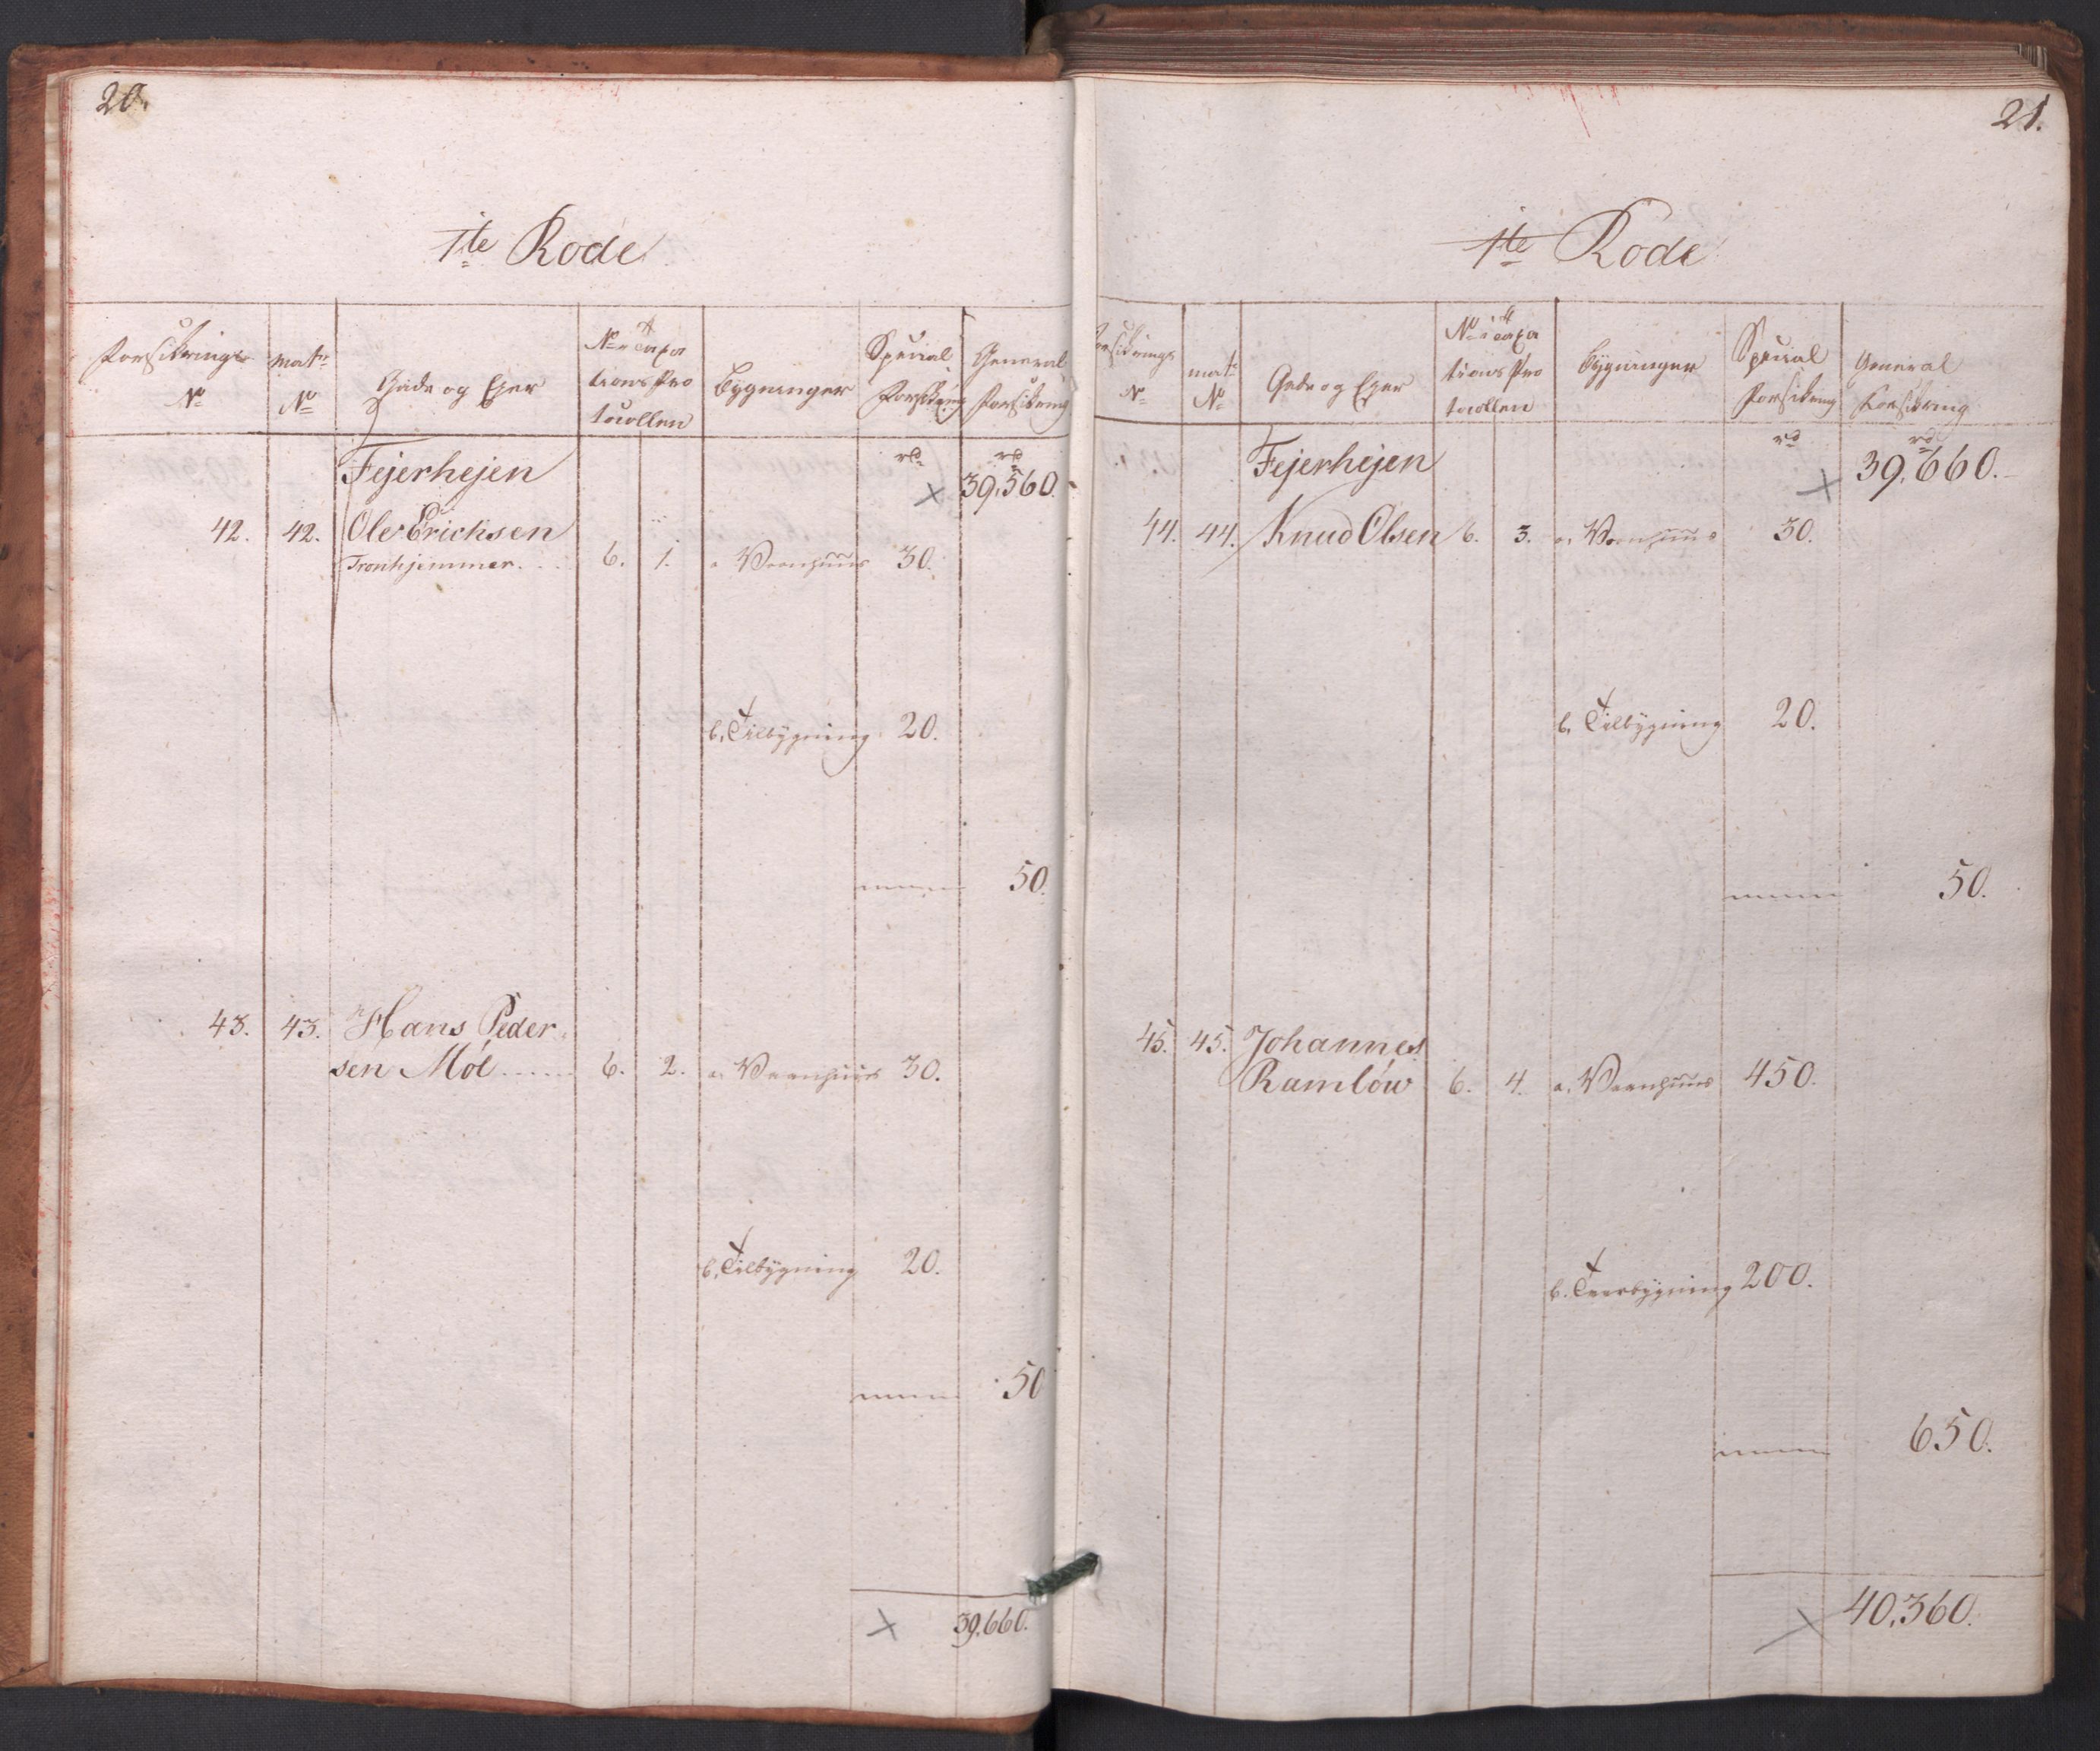 20.
1te Rode
Forsikrings No
Matr No
Gade og Ejer
No i Taxationsprotocollen
Bygninger
Special Forsikring
General Forsikring
Fejerhejen rd rd
39,560.
42. 42. Ole Erichsen
Tronhjemmer. 6. 1. a Vaanhuus 30.
b. Tilbygning 20.
50.
43. 43. Hans Peder
sen Möl 6. 2. a. Vaanhuus 30.
b. Tilbygning 20.
50
39,660.
21.
1te Rode
Forsikrings No
Matr No
Gade og Ejer
No i Taxationsprotocollen
Bygninger
Special Forsikring
General Forsikring
Fejerhejen rd rd
39,660.
44. 44. Knud Olsen 6. 3. a. Vaanhuus 30.
b. Tilbygning 20.
50.
45. 45. Johannes
Ramlöw 6. 4. a. Vaanhuus 450.
b. Tverbygning 200.
650.
40,360.